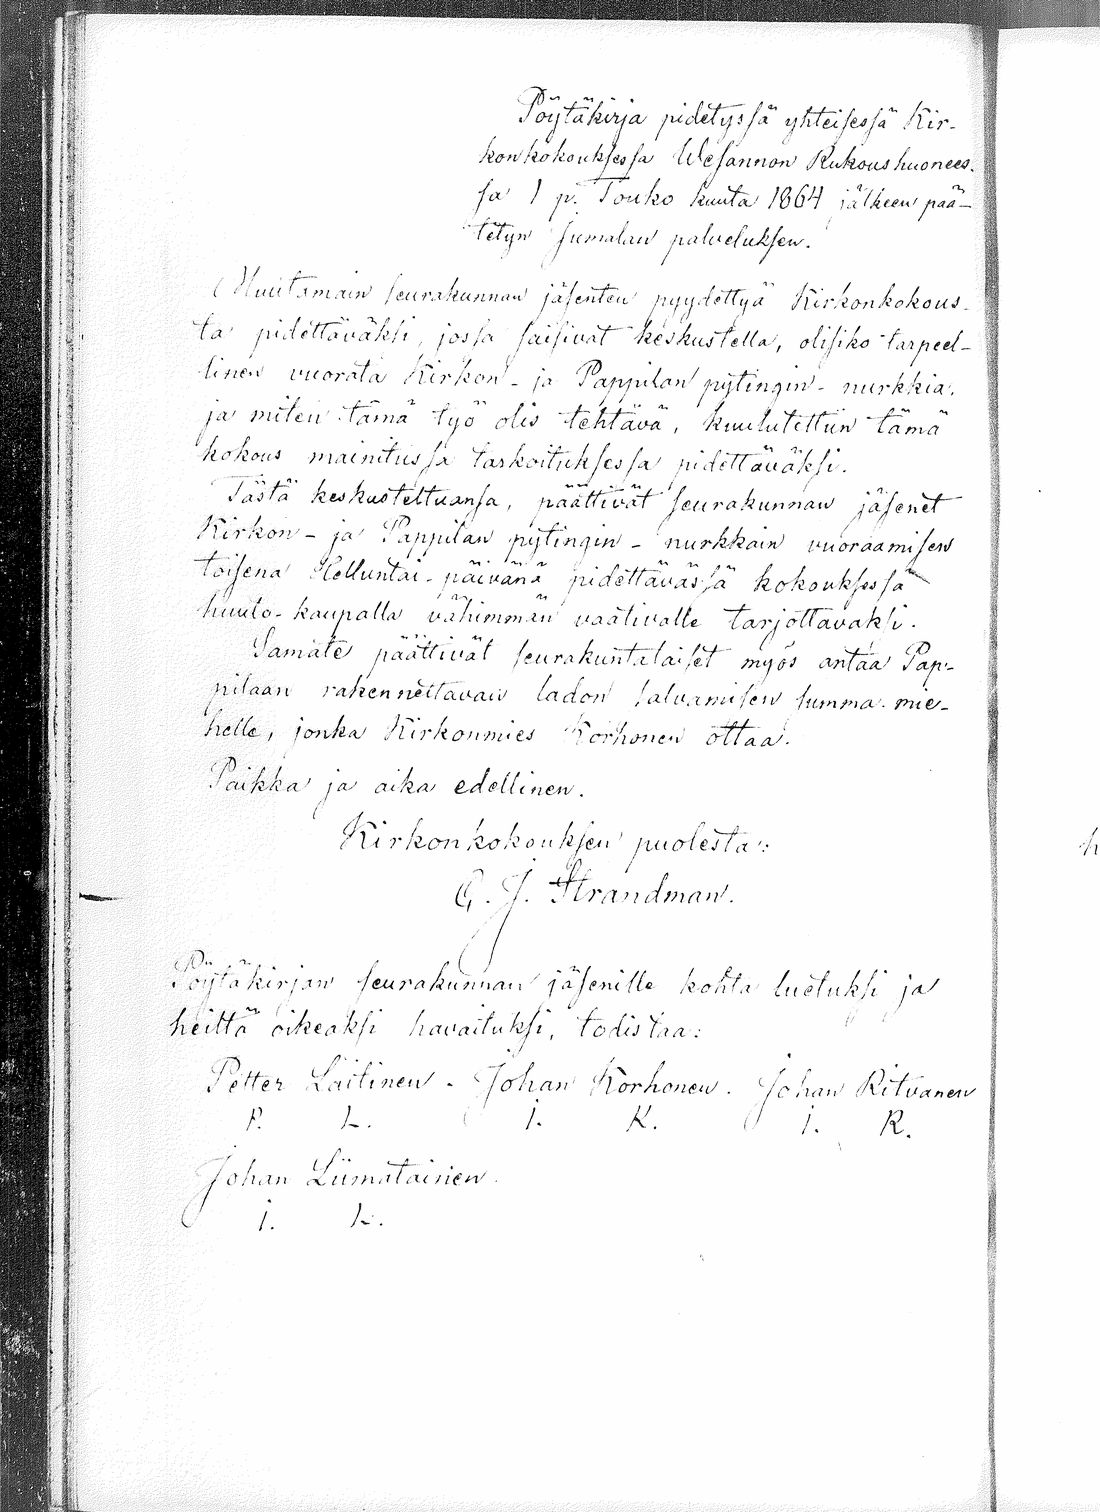 Pöytäkirja pidetyssä yhteisessä Kir-
konkokouksessa Wesannon Rukoushuonees-
sa 1 p. Touko kuuta 1864 jälkeen pää-
tetyn Jumalan palveluksen.
Muutamain seurakunnan jäsenten pyydettyä Kirkonkokous-
ta pidettäväksi, jossa saisivat keskustella, olisiko tarpeel-
linen vuorata Kirkon- ja Pappilan pytingin- nurkkia,
ja miten tämä työ olis tehtävä, kuulutettiin tämä
kokous mainitussa tarkoituksessa pidettäväksi.
Tästä keskusteltuansa, päättivät seurakunnan jäsenet
Kirkon- ja Pappilan pytingin- nurkkain vuoraamisen
toisena Helluntai-päivänä pidettävässä kokouksessa
huuto-kaupalla vähimmän vaativalle tarjottavaksi.
Samate päättivät seurakuntalaiset myös antaa Pap-
pilaan rakennettavan ladon salvamisen summa-mie-
helle, jonka Kirkonmies Korhonen ottaa.
Paikka ja aika edellinen.
Kirkonkokouksen puolesta:
C. J. Strandman.
Pöytäkirjan seurakunnan jäsenille kohta luetuksi ja
heiltä oikeaksi havaituksi, todistaa:
Petter Laitinen. Johan Korhonen. Johan Ritvanen
P. L. I. K. I. R.
Johan Liimatainen.
I. L.
h